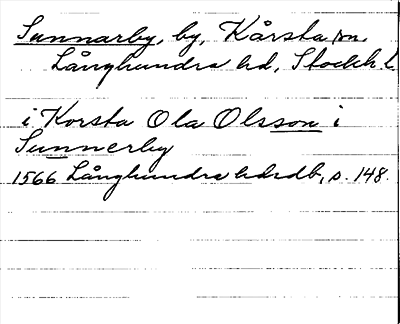 Sunnarby, by, Kårsta sn,
Långhundra hd, Stockh. l.
i Korsta Ola Olsson i
Sunnerby
1566 Långhundra hdrdb, s. 148.